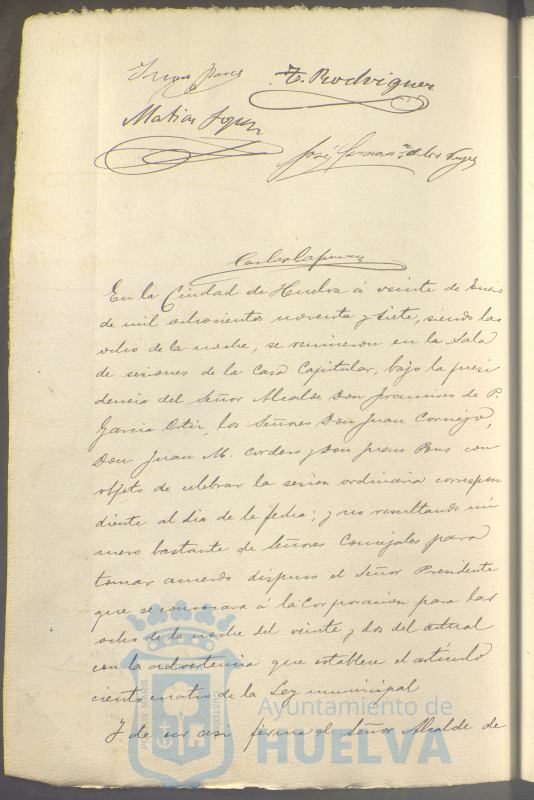 Juan Pons T. Rodriguez
Matias Lopez
José Hernan.z de los Reyes
Carlos
En la Ciudad de Huelva á veinte de Enero
de mil ochocientos noventa y siete, siendo las
ocho de la noche, se reunieron en la Sala
de sesiones de la Casa Capitular, bajo la presi
dencia del Señor Alcalde Don Francisco de P.
Garcia Ortiz, los Señores Don Juan Cornejo,
Don Juan M. Cordero y Don Juan Pons con
objeto de celebrar la sesion ordinaria correspon
diente al dia de la fecha; y no resultando nú
mero bastante de Señores Concejales para
tomar acuerdo dispuso el Señor Presidente
que se convocara á la Corporacion para las
ocho de la noche del veinte y dos del actual
con la advertencia que establece el articulo
ciento cuatro de la Ley municipal
Y de ser asi firma el Señor Alcalde de
Ayuntamiento de
HUELVA
PORTUS MARIS
CUSTODIA